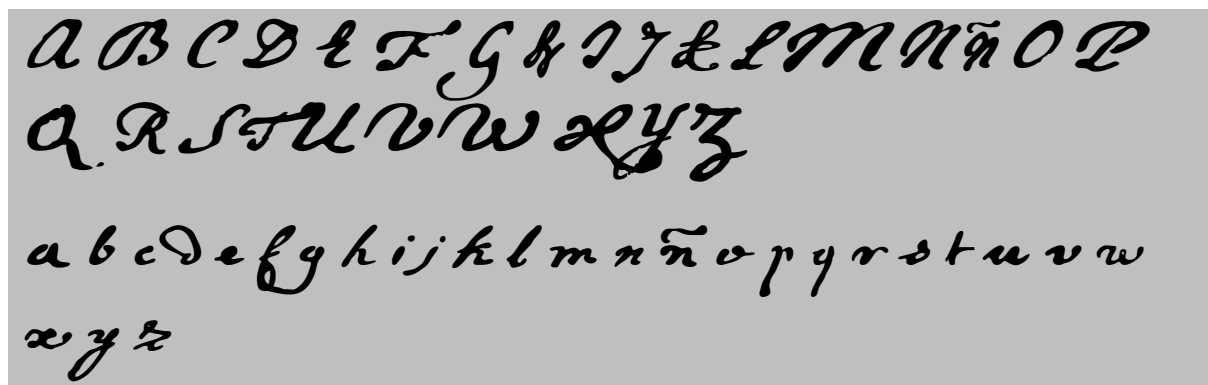 A B C D E F G H I J K L M N ñ O P
Q R S T U V W X Y Z
a b c d e f g h i j k l m n ñ o p q r s t u v w
x y z